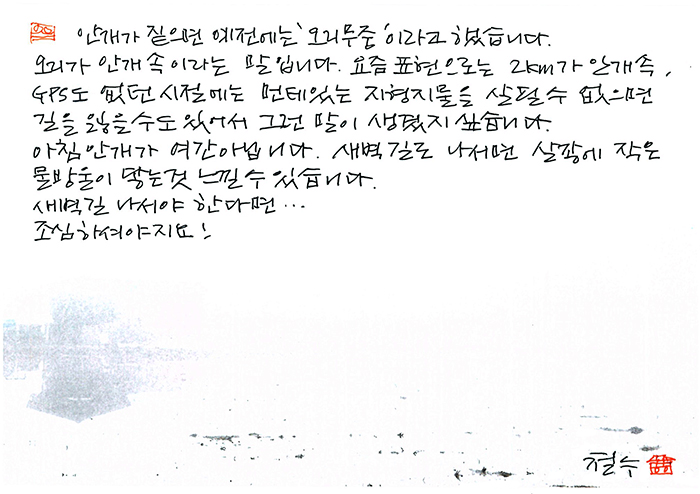 안개가 짙으면 예전에는 '오리무중'이라고 했습니다.
오리가 안개속이라는 말입니다. 요즘표현으로는 2km가 안개속,
GPS도 없던 시절에는 먼데있는 지형지물을 살필수 없으면
길을 잃을수도 있어서 그런 말이 생겼지 싶습니다.
아침안개가 여간아닙니다. 새벽길로 나서면 살갗에 작은
물방울이 닿는것 느낄수 있습니다.
새벽길 나서야 한다면…
조심하셔야지요!
철수